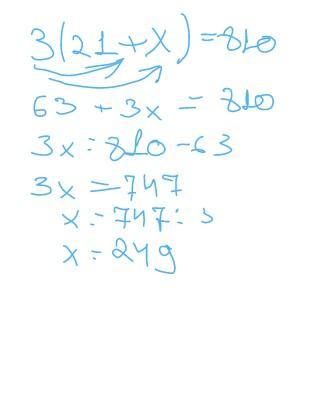 3(21+x)=810
63+3x=810
3x=810-63
3x=747
x=747:3
x=249